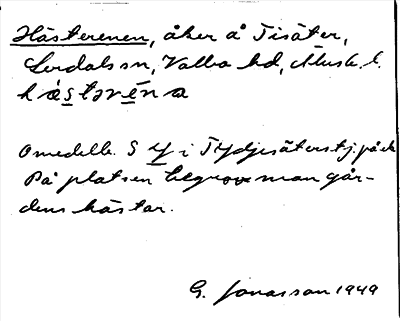 Hästerenen, åker å Tisäter,
Lerdals sn, Valbo hd, Älvsb. l.
hä̀stərén a
Omedelb. S y i Tydjesäters tj. på ek
På platsen begrov man går-
dens hästar.
G. Jonasson 1949